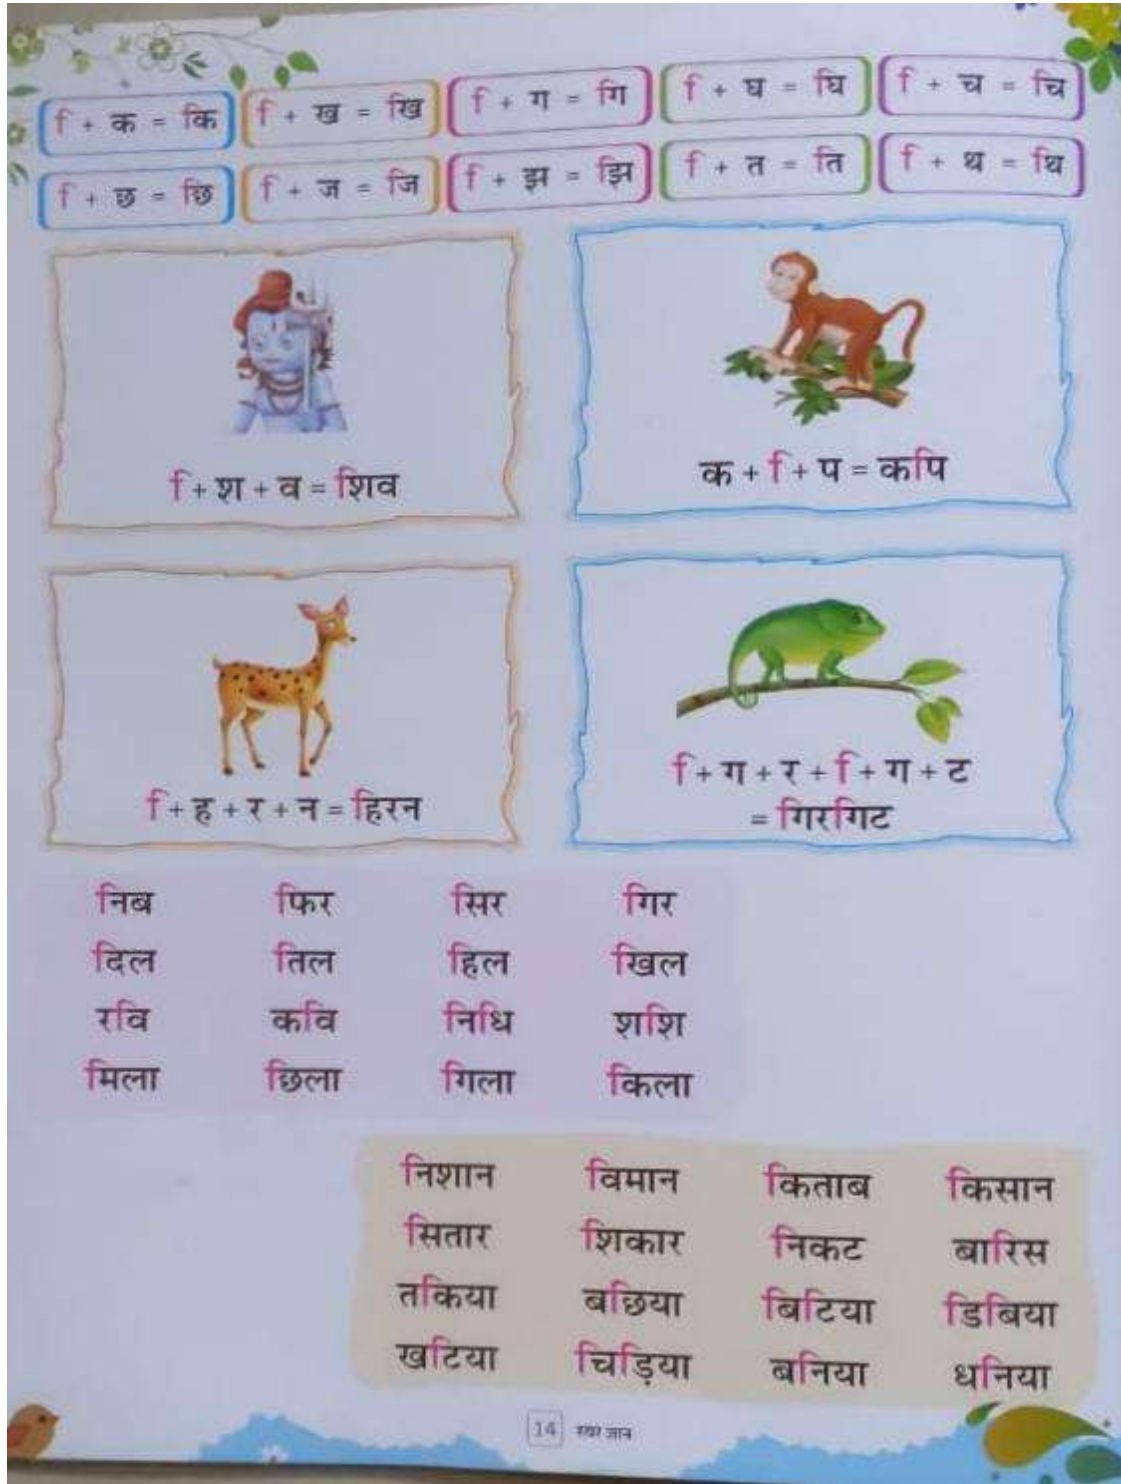 ि + क = कि ि + ख = खि ि + ग = गि ि + घ = घि ि + च = चि
ि + छ = छि ि + ज = जि ि + झ = झि ि + त = ति ि + थ = थि
ि + श + व = शिव
क + ि + प = कपि
ि + ह + र + न = हिरन
ि + ग + र + ि + ग + ट
= गिरगिट
निब फिर सिर गिर
दिल तिल हिल खिल
रवि कवि निधि शशि
मिला छिला गिला किला
निशान विमान किताब किसान
सितार शिकार निकट बारिस
तकिया बछिया बिटिया डिबिया
खटिया चिड़िया बनिया धनिया
14 स्वर ज्ञान